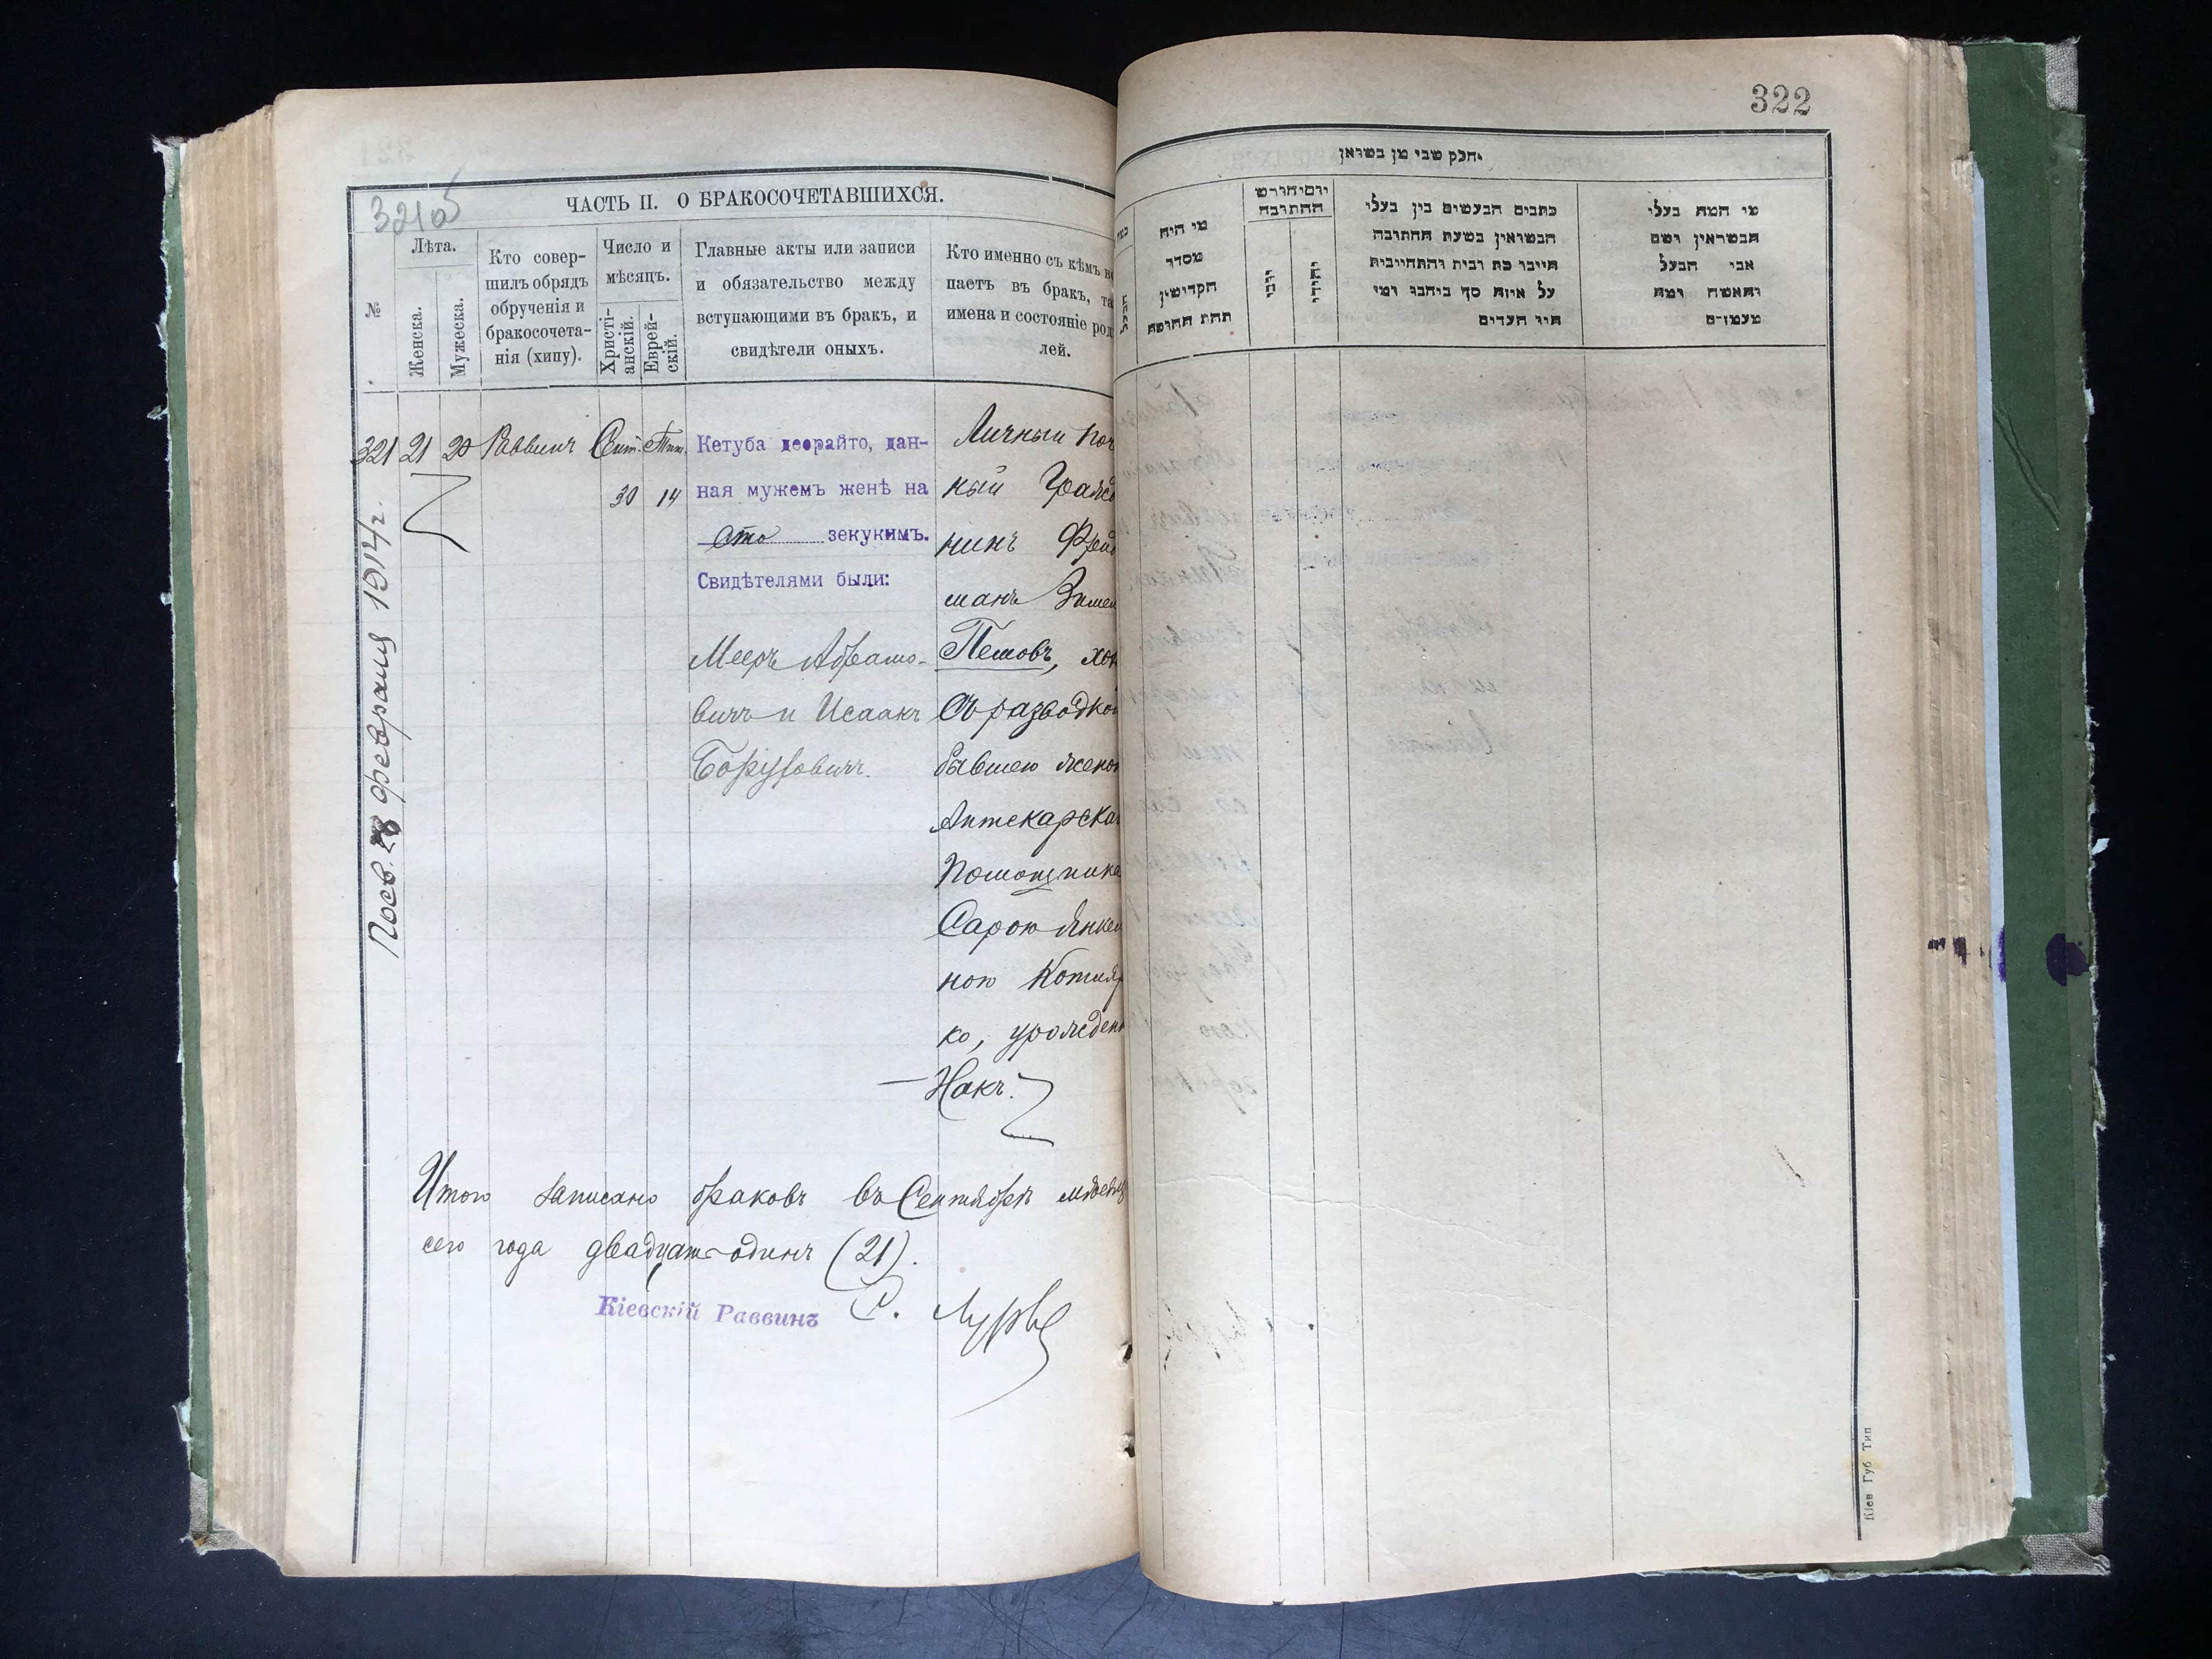 321 об
ЧАСТЬ II. О БРАКОСОЧЕТАВШИХСЯ.
№
Лѣта.
Женска.
Мужеска.
Кто совер-
шилъ обрядъ
обрученія и
бракосочета-
нія (хипу).
Число и
мѣсяцъ.
Христі-
анскій.
Еврей-
скій.
Главные акты или записи
и обязательство между
вступающими въ бракъ, и
свидѣтели оныхъ.
Кто именно съ кѣмъ вс
паетъ въ бракъ, та
имена и состояніе род
лей.
321 21 20 Раввинъ Сент. Тиш.
30 14
Кетуба деорайто, дан-
ная мужемъ женѣ на
сто зекукимъ.
Свидѣтелями были:
Мееръ Абрамо-
вичъ и Исаакъ
Борухович.
Личный поч
ный Гражд
нинъ Фрей
манъ
Пешовъ, хол
съ разводкой
бывшею женой
Аптекарска
Помощника
Сарою Янкел
ною Котляр
ко, урожден
Накъ.
Посв. 28 февраля 1914 г.
Итого записано браковъ въ Сентябрѣ мѣсяцѣ
сего года двадцать одинъ (21).
Кіевскій Раввинъ С. Лурье
322
חלק שני מן נשואן
מי היה
מסדר
הקדושין
תחת החופה
יום וחודש
החתובה
יוני
יהודי
כתבים הנעשים בין בעלי
הנשואין בשעת החתובה
חייבו כת ובית והתחייבית
על איזה סך ביהבו ומי
היו העדים
מי המה בעלי
הנשואין ושם
אבי הבעל
והאשה ומה
מעמדם
Кіев Губ Тип